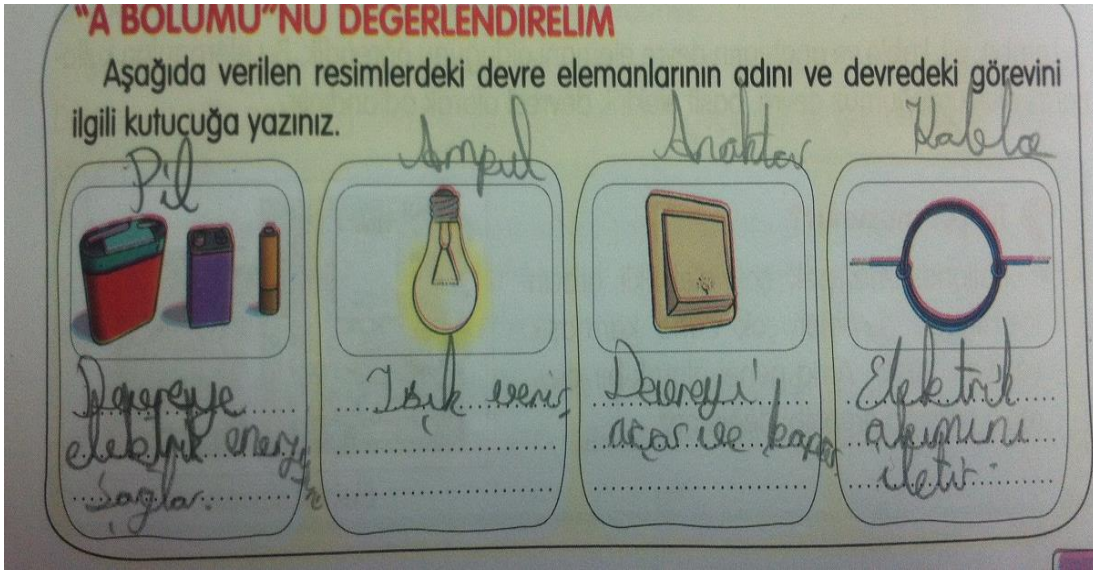 "A BÖLÜMÜ"NÜ DEĞERLENDİRELİM
Aşağıda verilen resimlerdeki devre elemanlarının adını ve devredeki görevini
ilgili kutucuğa yazınız.
Pil
Ampul
Anahtar
Kablo
Devreye
elektrik
sağlar.
Işık verir
Devreyi
açar ve kapar
Elektrik
akımını
iletir.